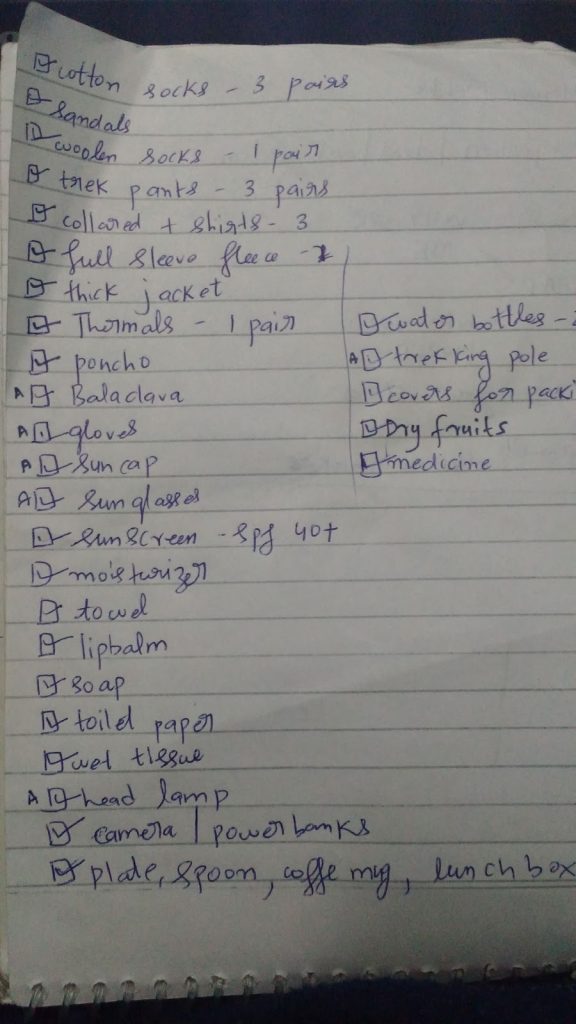 cotton socks - 3 pairs
sandals
woolen socks - 1 pair
trek pants - 3 pairs
collared t shirts - 3
full sleeve fleece -
thick jacket
Thermals - 1 pair
poncho
A Balaclava
A gloves
A sun cap
A sunglasses
sunscreen - spf 40+
moisturizer
towel
lipbalm
soap
toilet paper
wet tissue
A head lamp
camera | powerbanks
plate, spoon, coffe mug, lunch box
water bottles -
A trekking pole
covers for packi
Dry fruits
medicine